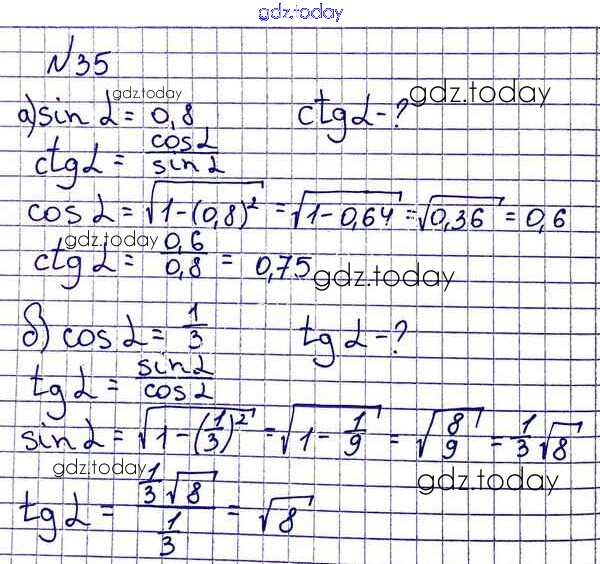 gdz.today
№35
а) sin α = 0,8 ctg α - ?
gdz.today gdz.today
ctg α = cos α / sin α
cos α = √(1-(0,8)²) = √(1-0,64) = √(0,36) = 0,6
gdz.today
ctg α = 0,6 / 0,8 = 0,75
gdz.today
б) cos α = 1/3 tg α - ?
tg α = sin α / cos α
sin α = √(1-(1/3)²) = √(1-1/9) = √(8/9) = 1/3 √8
gdz.today gdz.today
tg α = (1/3 √8) / (1/3) = √8